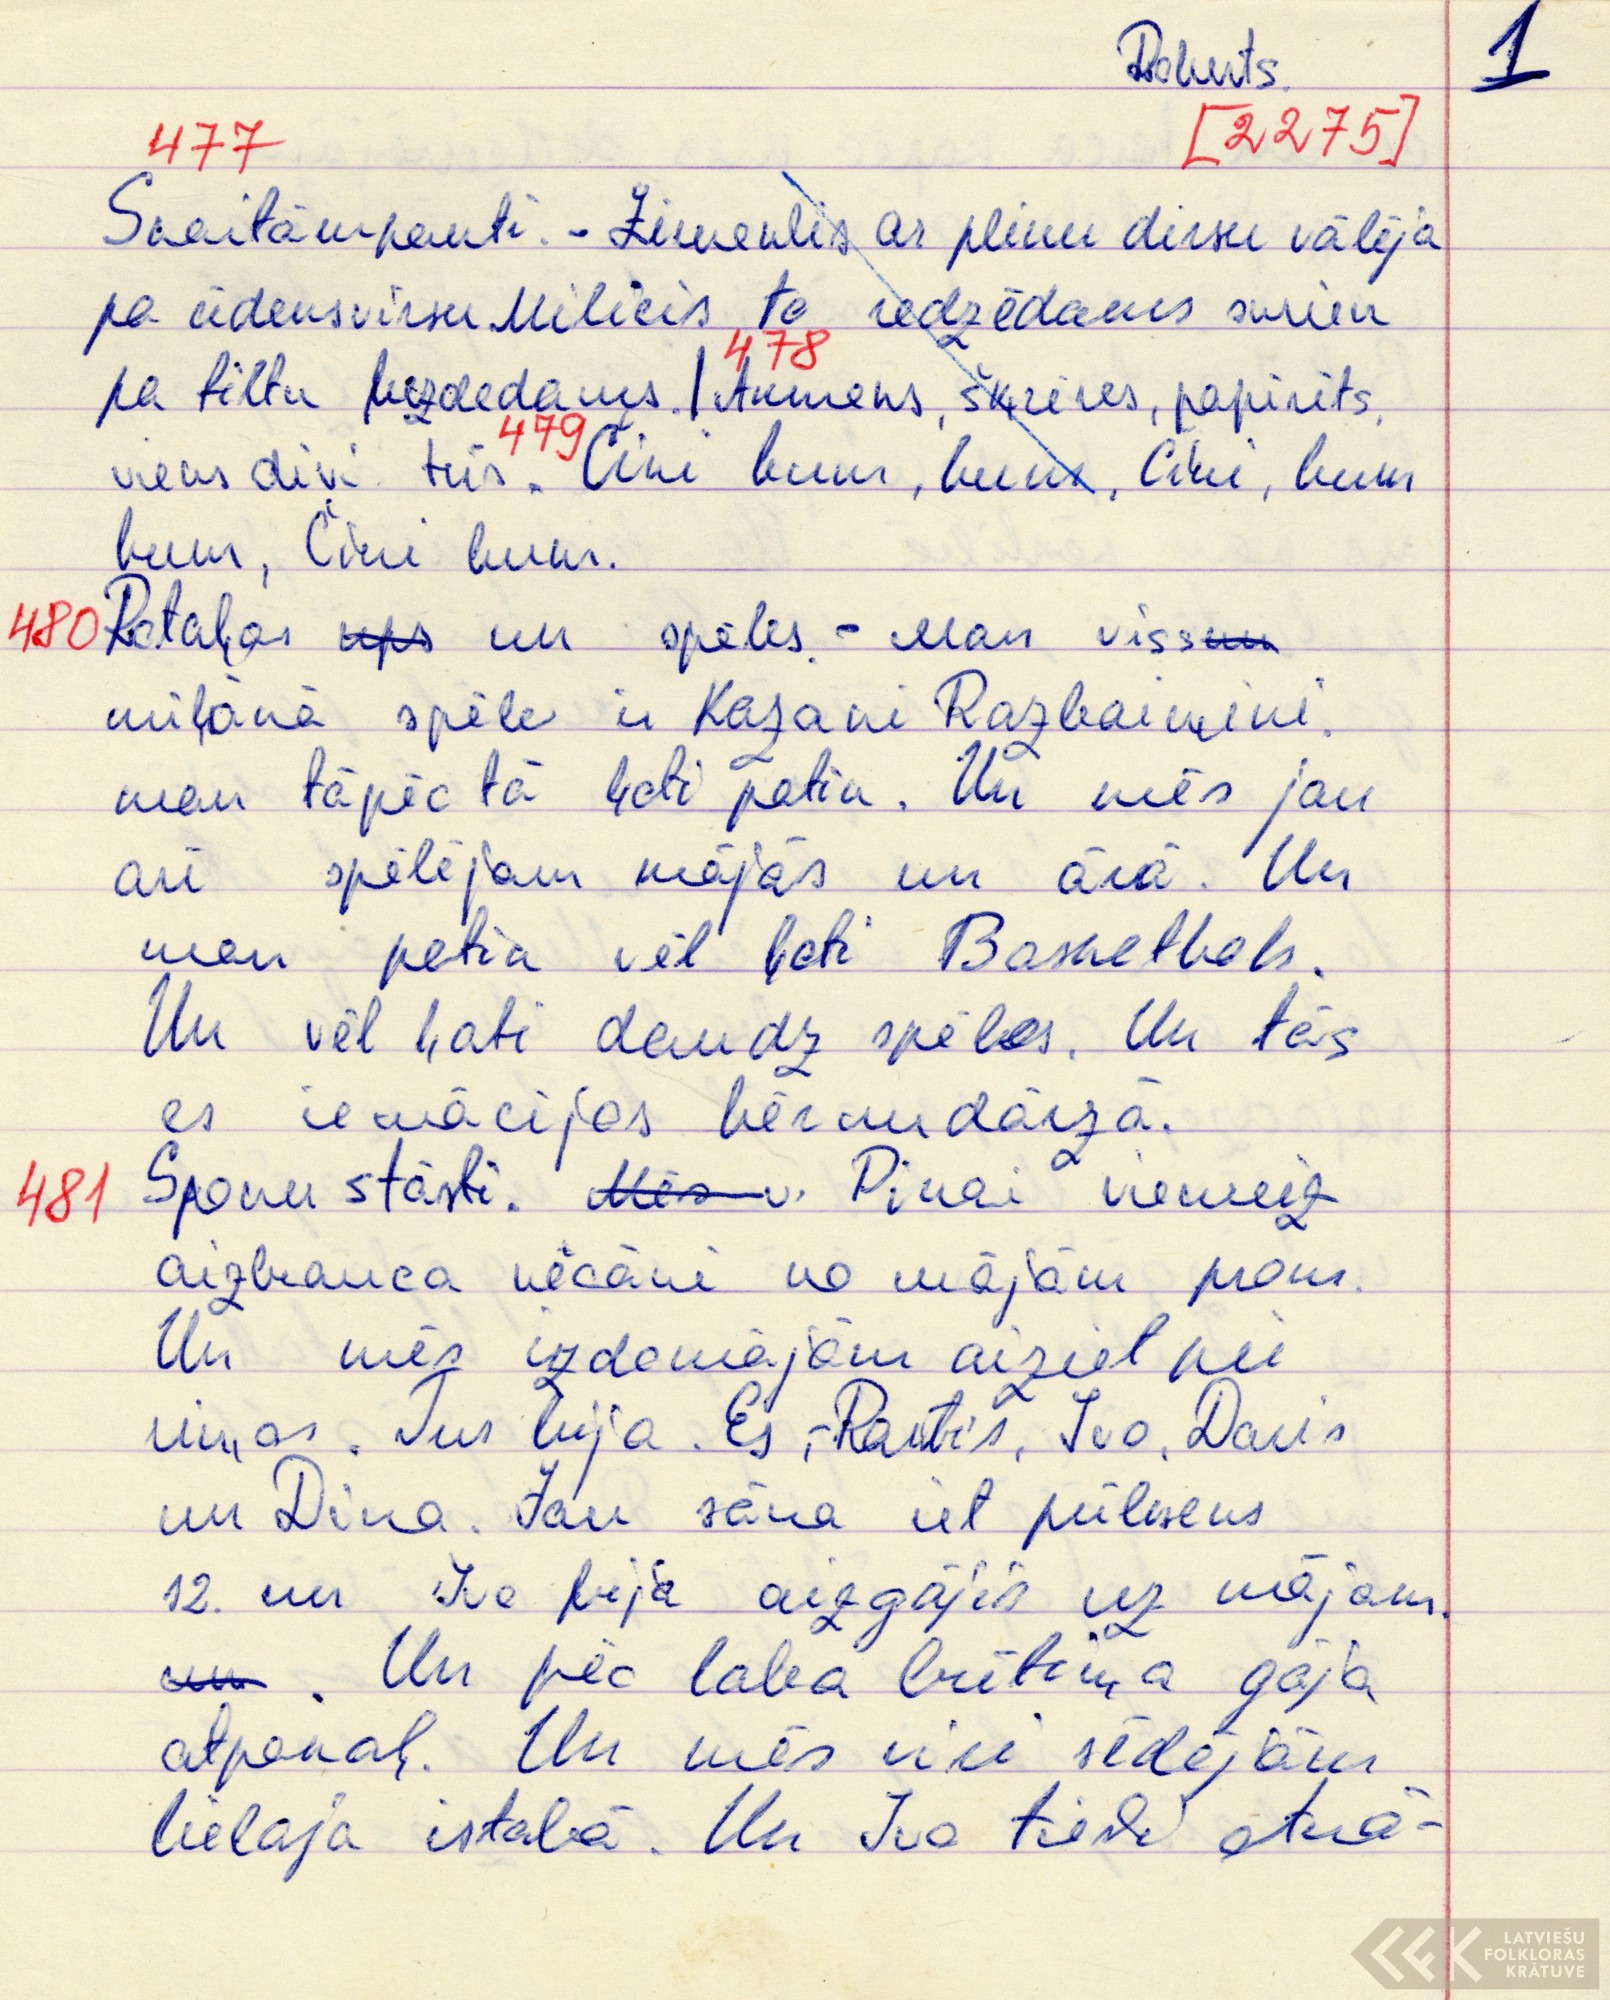 Roberts. 1
477 [2275]
Skaitāmpanti. - Zirneklis ar plinu dirsu vālēja
pa ūdensvirsu. Milicis to redzēdams skrien
pa tiltu bezdedams. / 478 Akmens, šķēres, papirīts,
viens divi trīs. 479 Čiki bum, bum, Čiki, bum
bum, Čiki bum.
480 Rotaļas ups un spēles. - Man vissun
miļākā spēle ir Kazaki Razbaiņiki.
man tāpēc tā ļoti patik. Un mēs jau
arī spēlējam mājās un ārā. Un
man patik vēl ļoti Basketbols.
Un vēl ļoti daudz spēles. Un tās
es iemācijos bērnudārzā.
481 Spoku stāsti. Mēs v. Dinai vienreiz
aizbrauca vēcāki no mājām prom.
Un mēs izdomājām aiziet pie
viņas. Tur bija. Es, Raitis, Ivo, Davis
un Dina. Jau sāka iet pūlksens
12. un Ivo bija aizgājis uz mājam.
un. Un pēc laba brītiņa gāja
atpakaļ. Un mēs visi sēdējām
lielajā istabā. Un Ivo tieši atnā-
LATVIEŠU
FOLKLORAS
KRĀTUVE